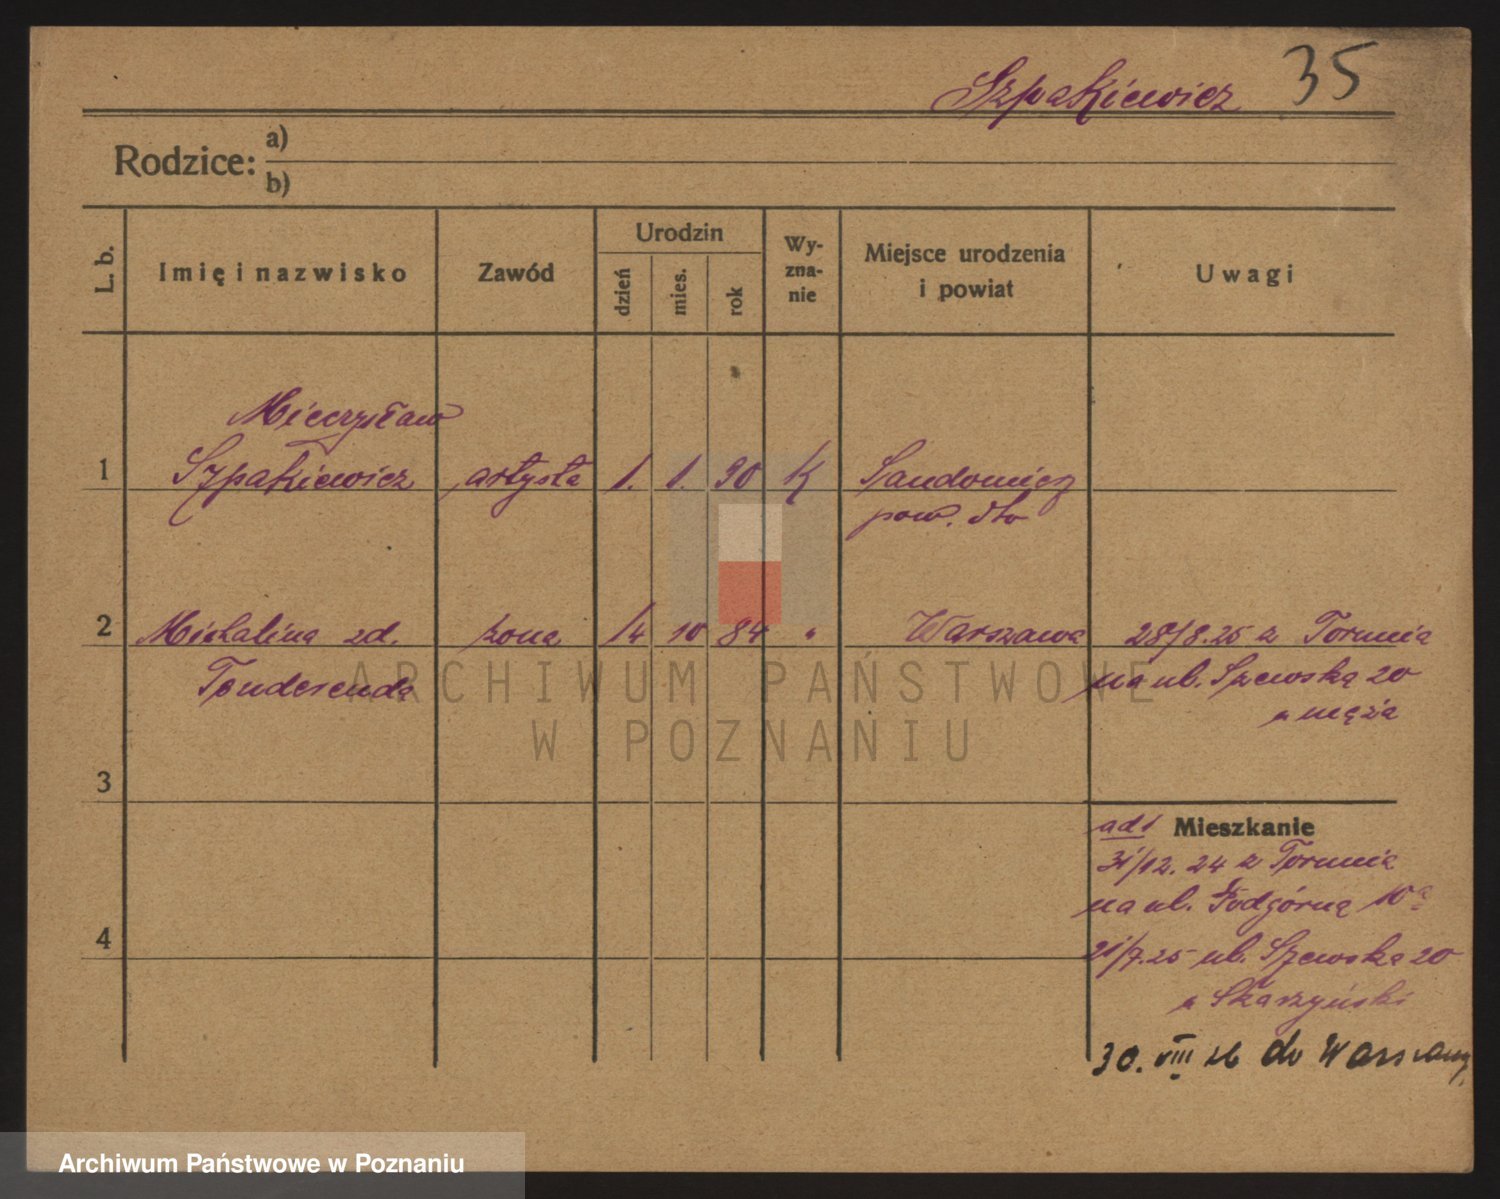 Szpakiewicz 35
Rodzice: a)
b)
L. b.
Imię i nazwisko
Zawód
Urodzin
dzień
mies.
rok
Wy-
zna-
nie
Miejsce urodzenia
i powiat
Uwagi
Mieczysław
1 Szpakiewicz artysta 1. 1. 90 K Sandomierz
pow. dto
2 Michalina zd. żona 14 10 84 " Warszawa 28/8.25 z Torunia
na ul. Szewską 20
u męża
3
ad 1 Mieszkanie
31/12. 24 z Torunia
na ul. Podgórną 10a
4
21/7.25 ul. Szewska 20
u Skarzyński
30. VIII 26 do Warszawy.
ARCHIWUM PAŃSTWOWE
W POZNANIU
Archiwum Państwowe w Poznaniu